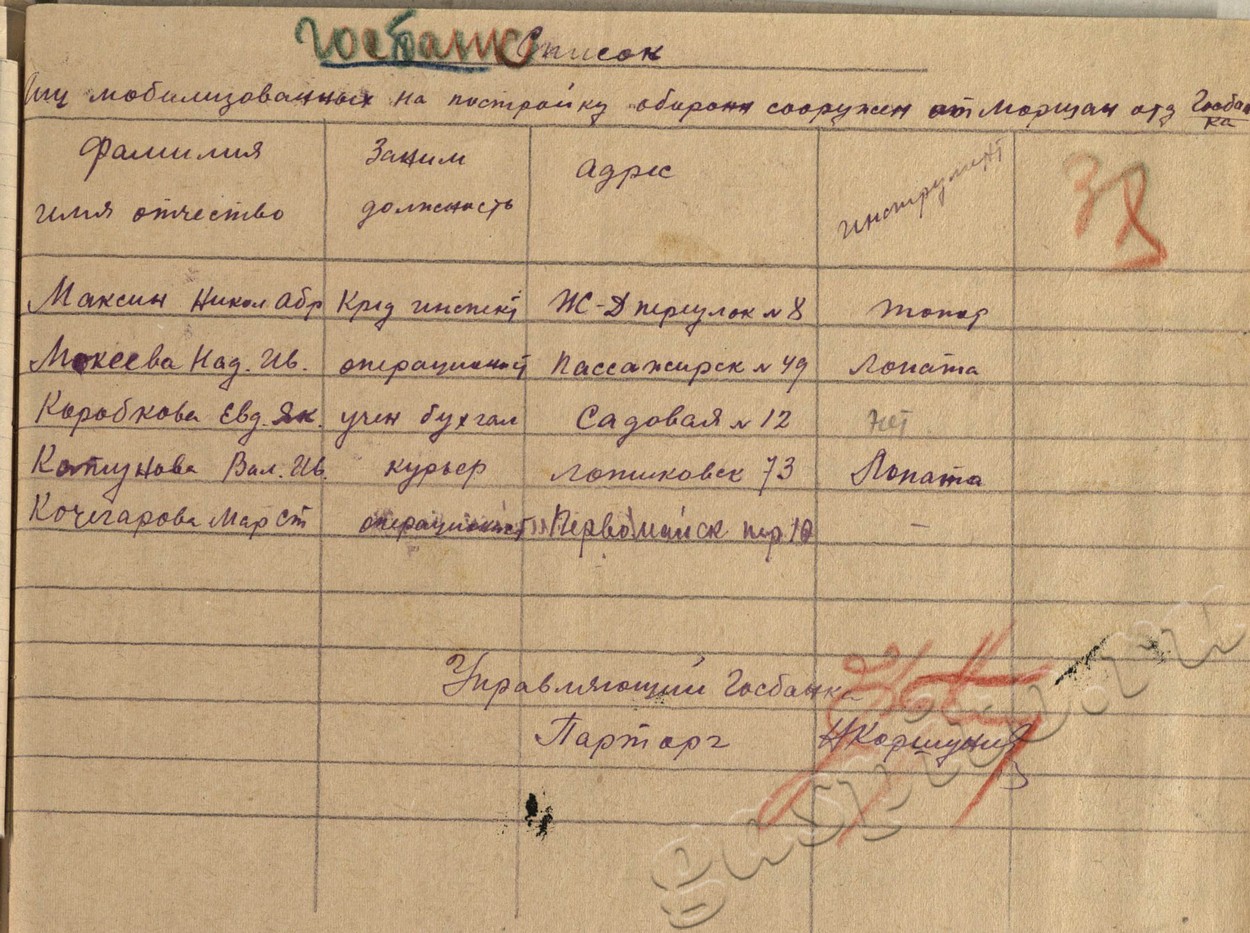 Госбанк Список
лиц мобилизованных на постройку оборон сооружен от Моршан отд Госбан
ка
Фамилия имя отчество Заним должность адрес инструмент
Максин Никол Абр Кред инспект Ж-Д переулок № 8 топор
Мокеева Над. Ив. операционист Пассажирск № 49 Лопата
Коробкова Евд. Як. учен бухгал Садовая № 12 нет
Колтунова Вал. Ив. курьер Лотиковск 73 Лопата
Кочегарова Мар Ст операционист Первомайск пер. 10 —
Управляющий Госбанка
Парторг Н Коршунов
gaspito.ru